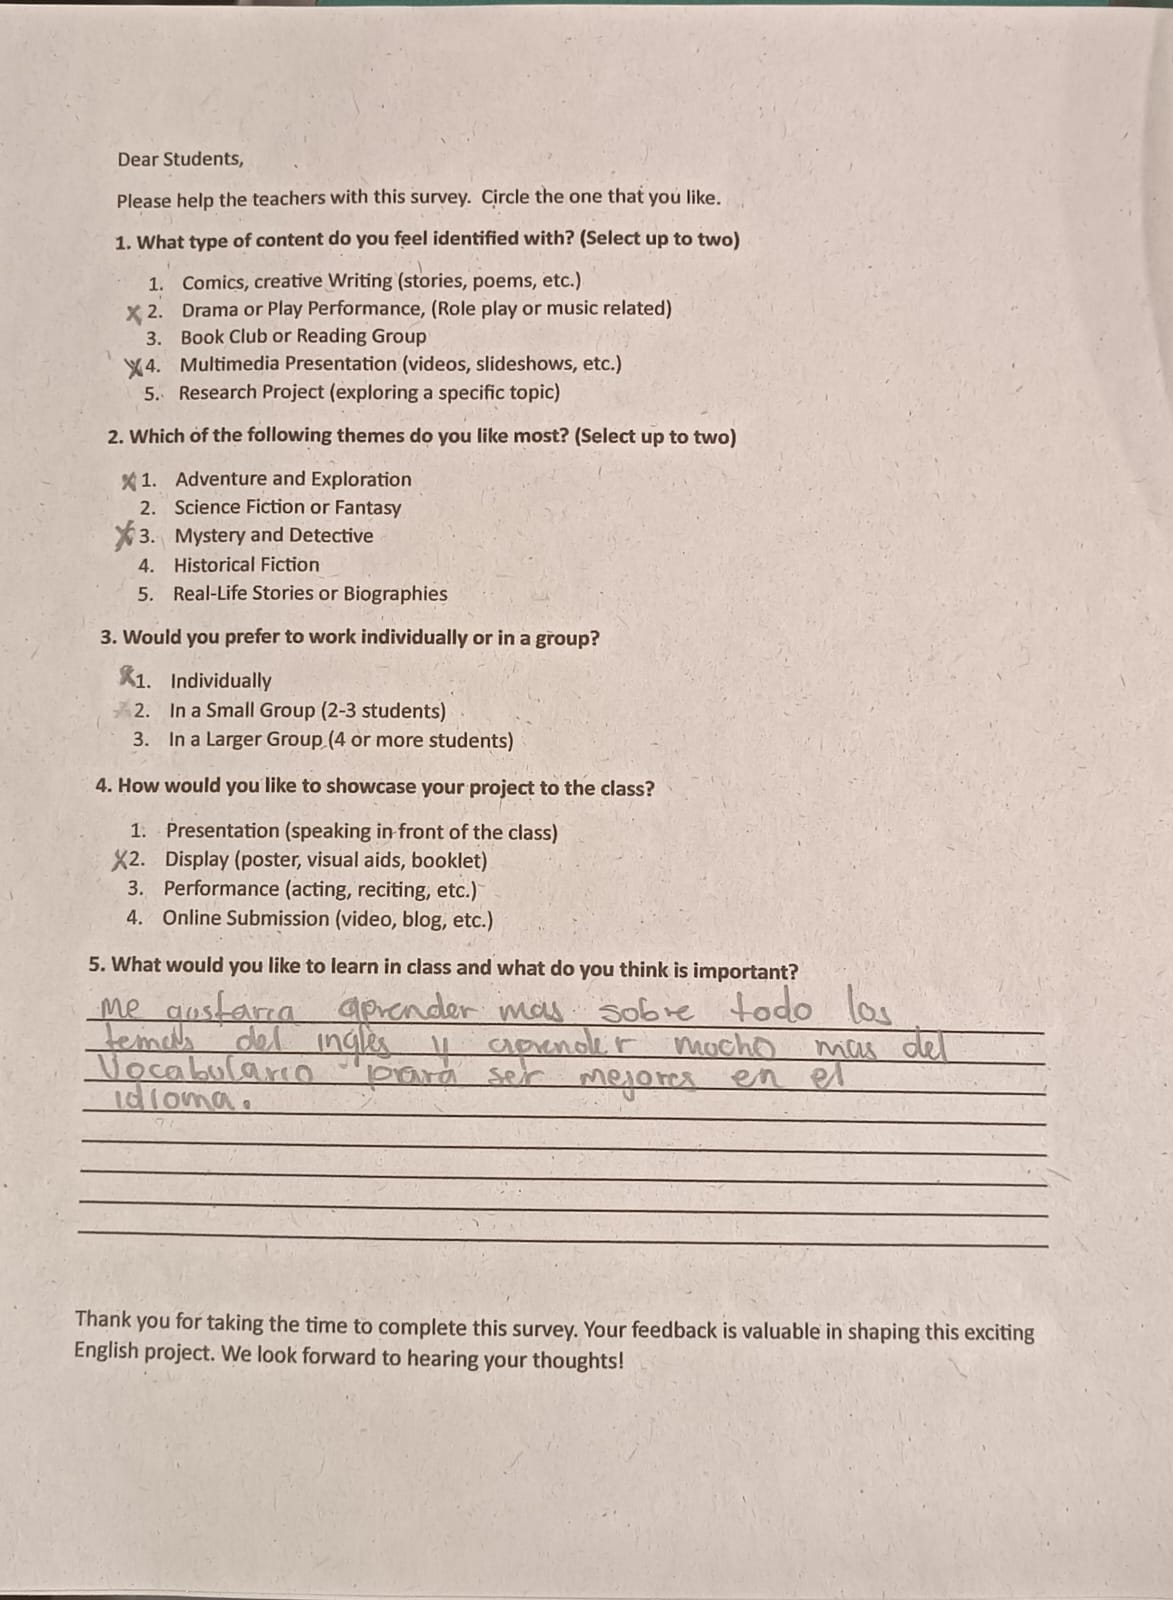 Dear Students,
Please help the teachers with this survey. Circle the one that you like.
1. What type of content do you feel identified with? (Select up to two)
1. Comics, creative Writing (stories, poems, etc.)
X 2. Drama or Play Performance, (Role play or music related)
3. Book Club or Reading Group
X 4. Multimedia Presentation (videos, slideshows, etc.)
5. Research Project (exploring a specific topic)
2. Which of the following themes do you like most? (Select up to two)
X 1. Adventure and Exploration
2. Science Fiction or Fantasy
X 3. Mystery and Detective
4. Historical Fiction
5. Real-Life Stories or Biographies
3. Would you prefer to work individually or in a group?
X 1. Individually
2. In a Small Group (2-3 students)
3. In a Larger Group (4 or more students)
4. How would you like to showcase your project to the class?
1. Presentation (speaking in front of the class)
X 2. Display (poster, visual aids, booklet)
3. Performance (acting, reciting, etc.)
4. Online Submission (video, blog, etc.)
5. What would you like to learn in class and what do you think is important?
Me gustaria aprender mas sobre todo los
temas del ingles y aprender mucho mas del
Vocabulario para ser mejores en el
idioma.
Thank you for taking the time to complete this survey. Your feedback is valuable in shaping this exciting
English project. We look forward to hearing your thoughts!